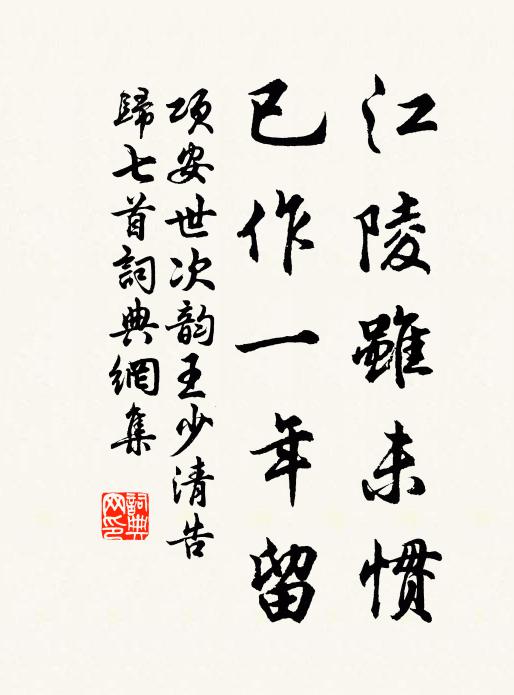 江陵雖未慣
已作一年留
项安世次韵王少清告
歸七首詞典網集
詞典
网印